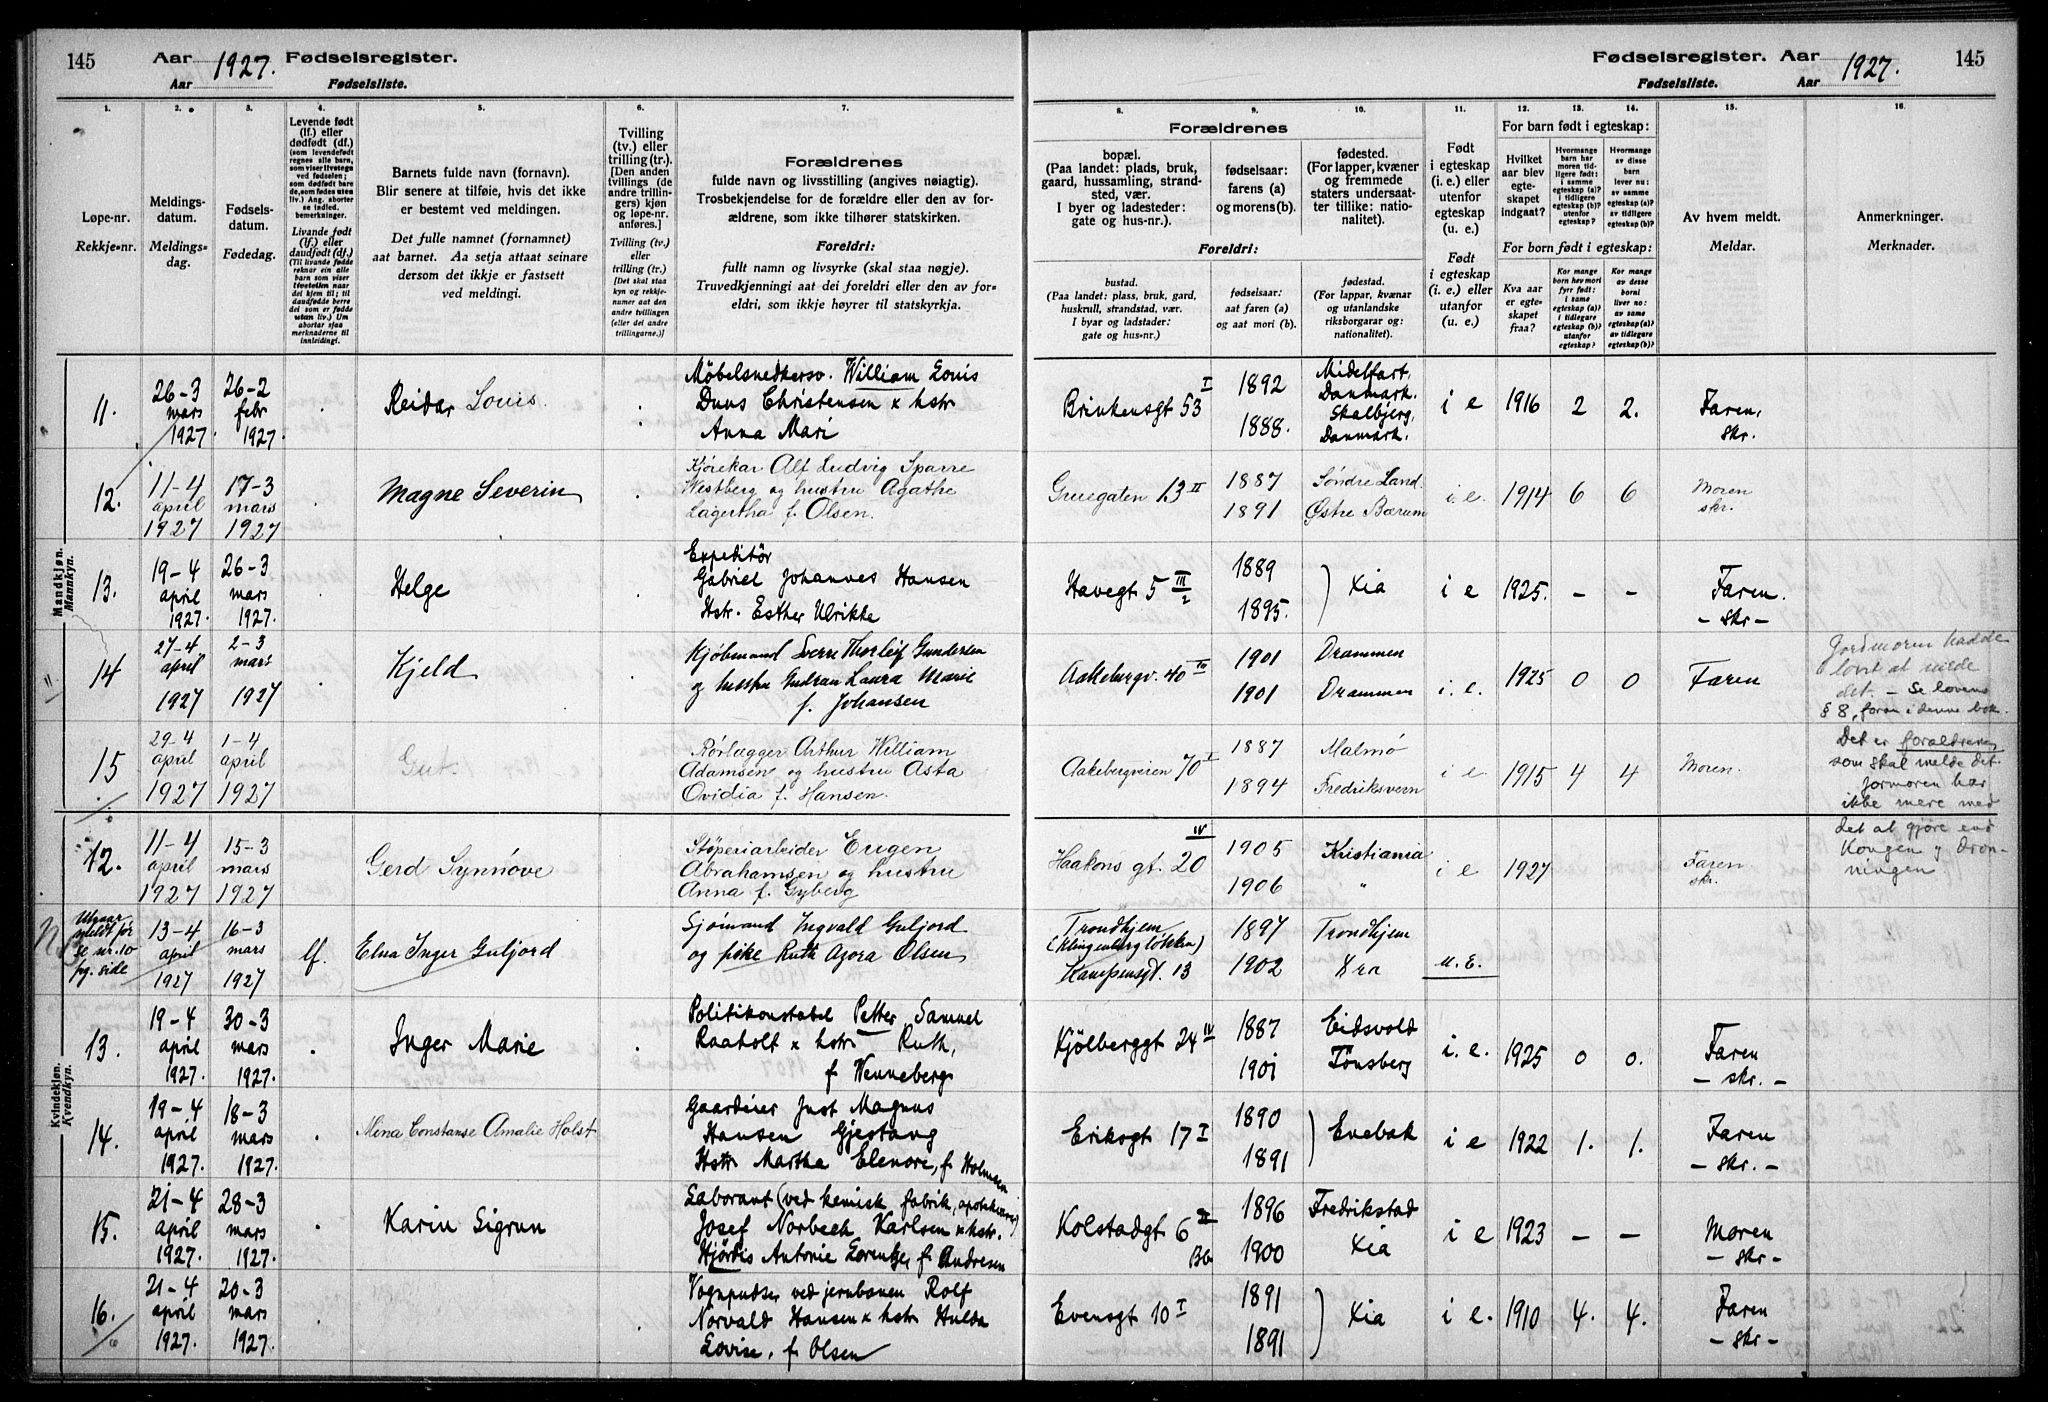 145 Aar 1927. Fødselsregister.
Aar Fødselsliste.
1. 2. 3. 4. 5. 6. 7.
Løpe-nr.
Rekkje-nr.
Meldings-
datum.
Meldings-
dag.
Fødsels-
datum.
Fødedag.
Levende født
(lf.) eller
dødfødt (df.)
Livande fødd
(lf.) eller
daudfødt (df.)
Barnets fulde navn (fornavn).
Blir senere at tilføie, hvis det ikke
er bestemt ved meldingen.
Det fulle namnet (fornamnet)
aat barnet. Aa setja attaat seinare
dersom det ikkje er fastsett
ved meldingi.
Tvilling
(tv.) eller
trilling (tr.).
[Den anden
tvillings (de
andre trillin-
gers) kjøn
og løpe-nr.
anføres.]
Tvilling (tv.)
eller
trilling (tr.)
[Det skal staa
kyn og rekkje-
numer aat den
andre tvillingen
(eller dei andre
trillingarne.)]
Forældrenes
fulde navn og livsstilling (angives nøiagtig).
Trosbekjendelse for de forældre eller den av for-
ældrene, som ikke tilhører statskirken.
Foreldri:
fullt namn og livsyrke (skal staa nøgje).
Truvedkjenningi aat dei foreldri eller den av for-
eldri, som ikkje høyrer til statskyrkja.
Mandkjøn.
Mannkyn.
11.
26-3
mars
1927.
26-2
febr
1927.
Reidar Louis.
Møbelsnedkersv. William Louis
Duus Christensen x hstr
Anna Mari
12.
11-4
april
1927
17-3
mars
1927
Magne Severin
Kjørekar Alf Ludvig Sparre
Westberg og hustru Agathe
Lagertha f. Olsen.
13.
19-4
april
1927.
26-3
mars
1927.
Helge
Expeditør
Gabriel Johannes Hansen
Hstr. Esther Ulrikke
14
27-4
april
1927
2-3
mars
1927
Kjeld
Kjøbmand Sverre Thorleif Gundersen
og hustru Gudrun Laura Marie
f. Johansen
15
29-4
april
1927
1-4
april
1927
Gut.
Rørlægger Arthur William
Adamsen og hustru Asta
Ovidia f. Hansen.
Kvindekjøn.
Kvendkyn.
12.
11-4
april
1927
15-3
mars
1927
Gerd Synnøve
Støperiarbeider Eugen
Abrahamsen og hustru
Anna f. Gyberg
Utgaar
meldt før
se nr. 10
fg. side
13-4
april
1927
16-3
mars
1927
lf.
Elna Inger Guljord
Sjømand Ingvald Guljord
og pike Ruth Agora Olsen
13.
19-4
april
1927.
30-3
mars
1927.
Inger Marie
Politikonstabel Petter Samuel
Raaholt x hstr Ruth,
f. Wenneberg
14.
19-4
april
1927.
18-3
mars
1927.
Mina Constanse Amalie Holst
Gaardeier Just Magnus
Hansen Gjestang
Hstr Martha Elenore, f. Holmsen
15.
21-4
april
1927.
28-3
mars
1927.
Karin Sigrun
Laborant (ved kemisk fabrik,
Josef Norbech Karlsen x hstr.
Hjørdis Antonie Lorentze, f. Andresen
16.
21-4
april
1927.
20-3
mars
1927.
Vognpudser ved jernbanen Rolf
Norvald Hansen x hstr Hulda
Lovise, f. Olsen
Fødselsregister. Aar 1927. 145
Fødselsliste. Aar
8. 9. 10. 11. 12. 13. 14. 15. 16.
Forældrenes
bopæl.
(Paa landet: plads, bruk,
gaard, hussamling, strand-
sted, vær.
I byer og ladesteder:
gate og hus-nr.).
fødselsaar:
farens (a)
og morens (b).
fødested.
(For lapper, kvæner
og fremmede
staters undersaat-
ter tillike: natio-
nalitet).
Foreldri:
bustad.
(Paa landet: plass, bruk, gard,
huskrull, strandstad, vær.
I byar og ladstader:
gate og hus-nr.)
fødselsaar:
aat faren (a)
og aat mori (b).
fødestad.
(For lappar, kvænar
og utanlandske
riksborgarar og:
nationalitet).
Født
i egteskap
(i. e.) eller
utenfor
egteskap
(u. e.)
Født
i egteskap
(i. e.) eller
utanfor
(u. e.).
For barn født i egteskap:
Hvilket
aar blev
egte-
skapet
indgaat?
For born født i egteskap:
Kva aar
er egte-
skapet
fraa?
Av hvem meldt.
Meldar.
Anmerkninger.
Merknader.
Brinkensgt 53 I
1892
1888.
Midelfart.
Danmark.
Skalbjerg.
Danmark.
i e 1916 2 2.
Faren,
skr.
Gruegaten 13 II
1887
1891
Søndre Land
Østre Bærum
i. e. 1914 6 6
Moren
skr.
Havegt 5 III/2
1889
1895.
) Xia
i e 1925. - -
Faren.
- skr -
Aakebergv. 40 III
1901
1901
Drammen
Drammen
i. e. 1925 0 0
Faren
Jordmoren hadde
lovt at melde
det. - Se lovens
§ 8, foran i denne bok.
Aakebergveien 70 I
1887
1894
Malmø
Fredriksvern
i e 1915 4 4
Moren.
Det er forældrene,
som skal melde det
jormoren har
ikke mere med
det at gjøre end
Kongen og dron-
ningen
Haakons gt. 20 IV
1905
1906
Kristiania
"
i e 1927
Faren
skr.
Trondhjem
(Klingenberg løkken)
Kampensgt. 13
1897
1902
Trondhjem
Kra
u. E.
Kjølberggt 24 IV
1887
1901
Eidsvold
Tønsberg
i. e. 1925 0 0.
Faren
- skr. -
Eriksgt 17 I
1890
1891
) Enebak
i e 1922 1. 1.
Faren
- skr. -
Kolstadgt 6 II
1896
1900
Fredrikstad
Xia
i e 1923 - -
Moren
- skr -
Evensgt 10 I
1891
1891
) Xia
i e 1910 4. 4.
Faren
- skr -